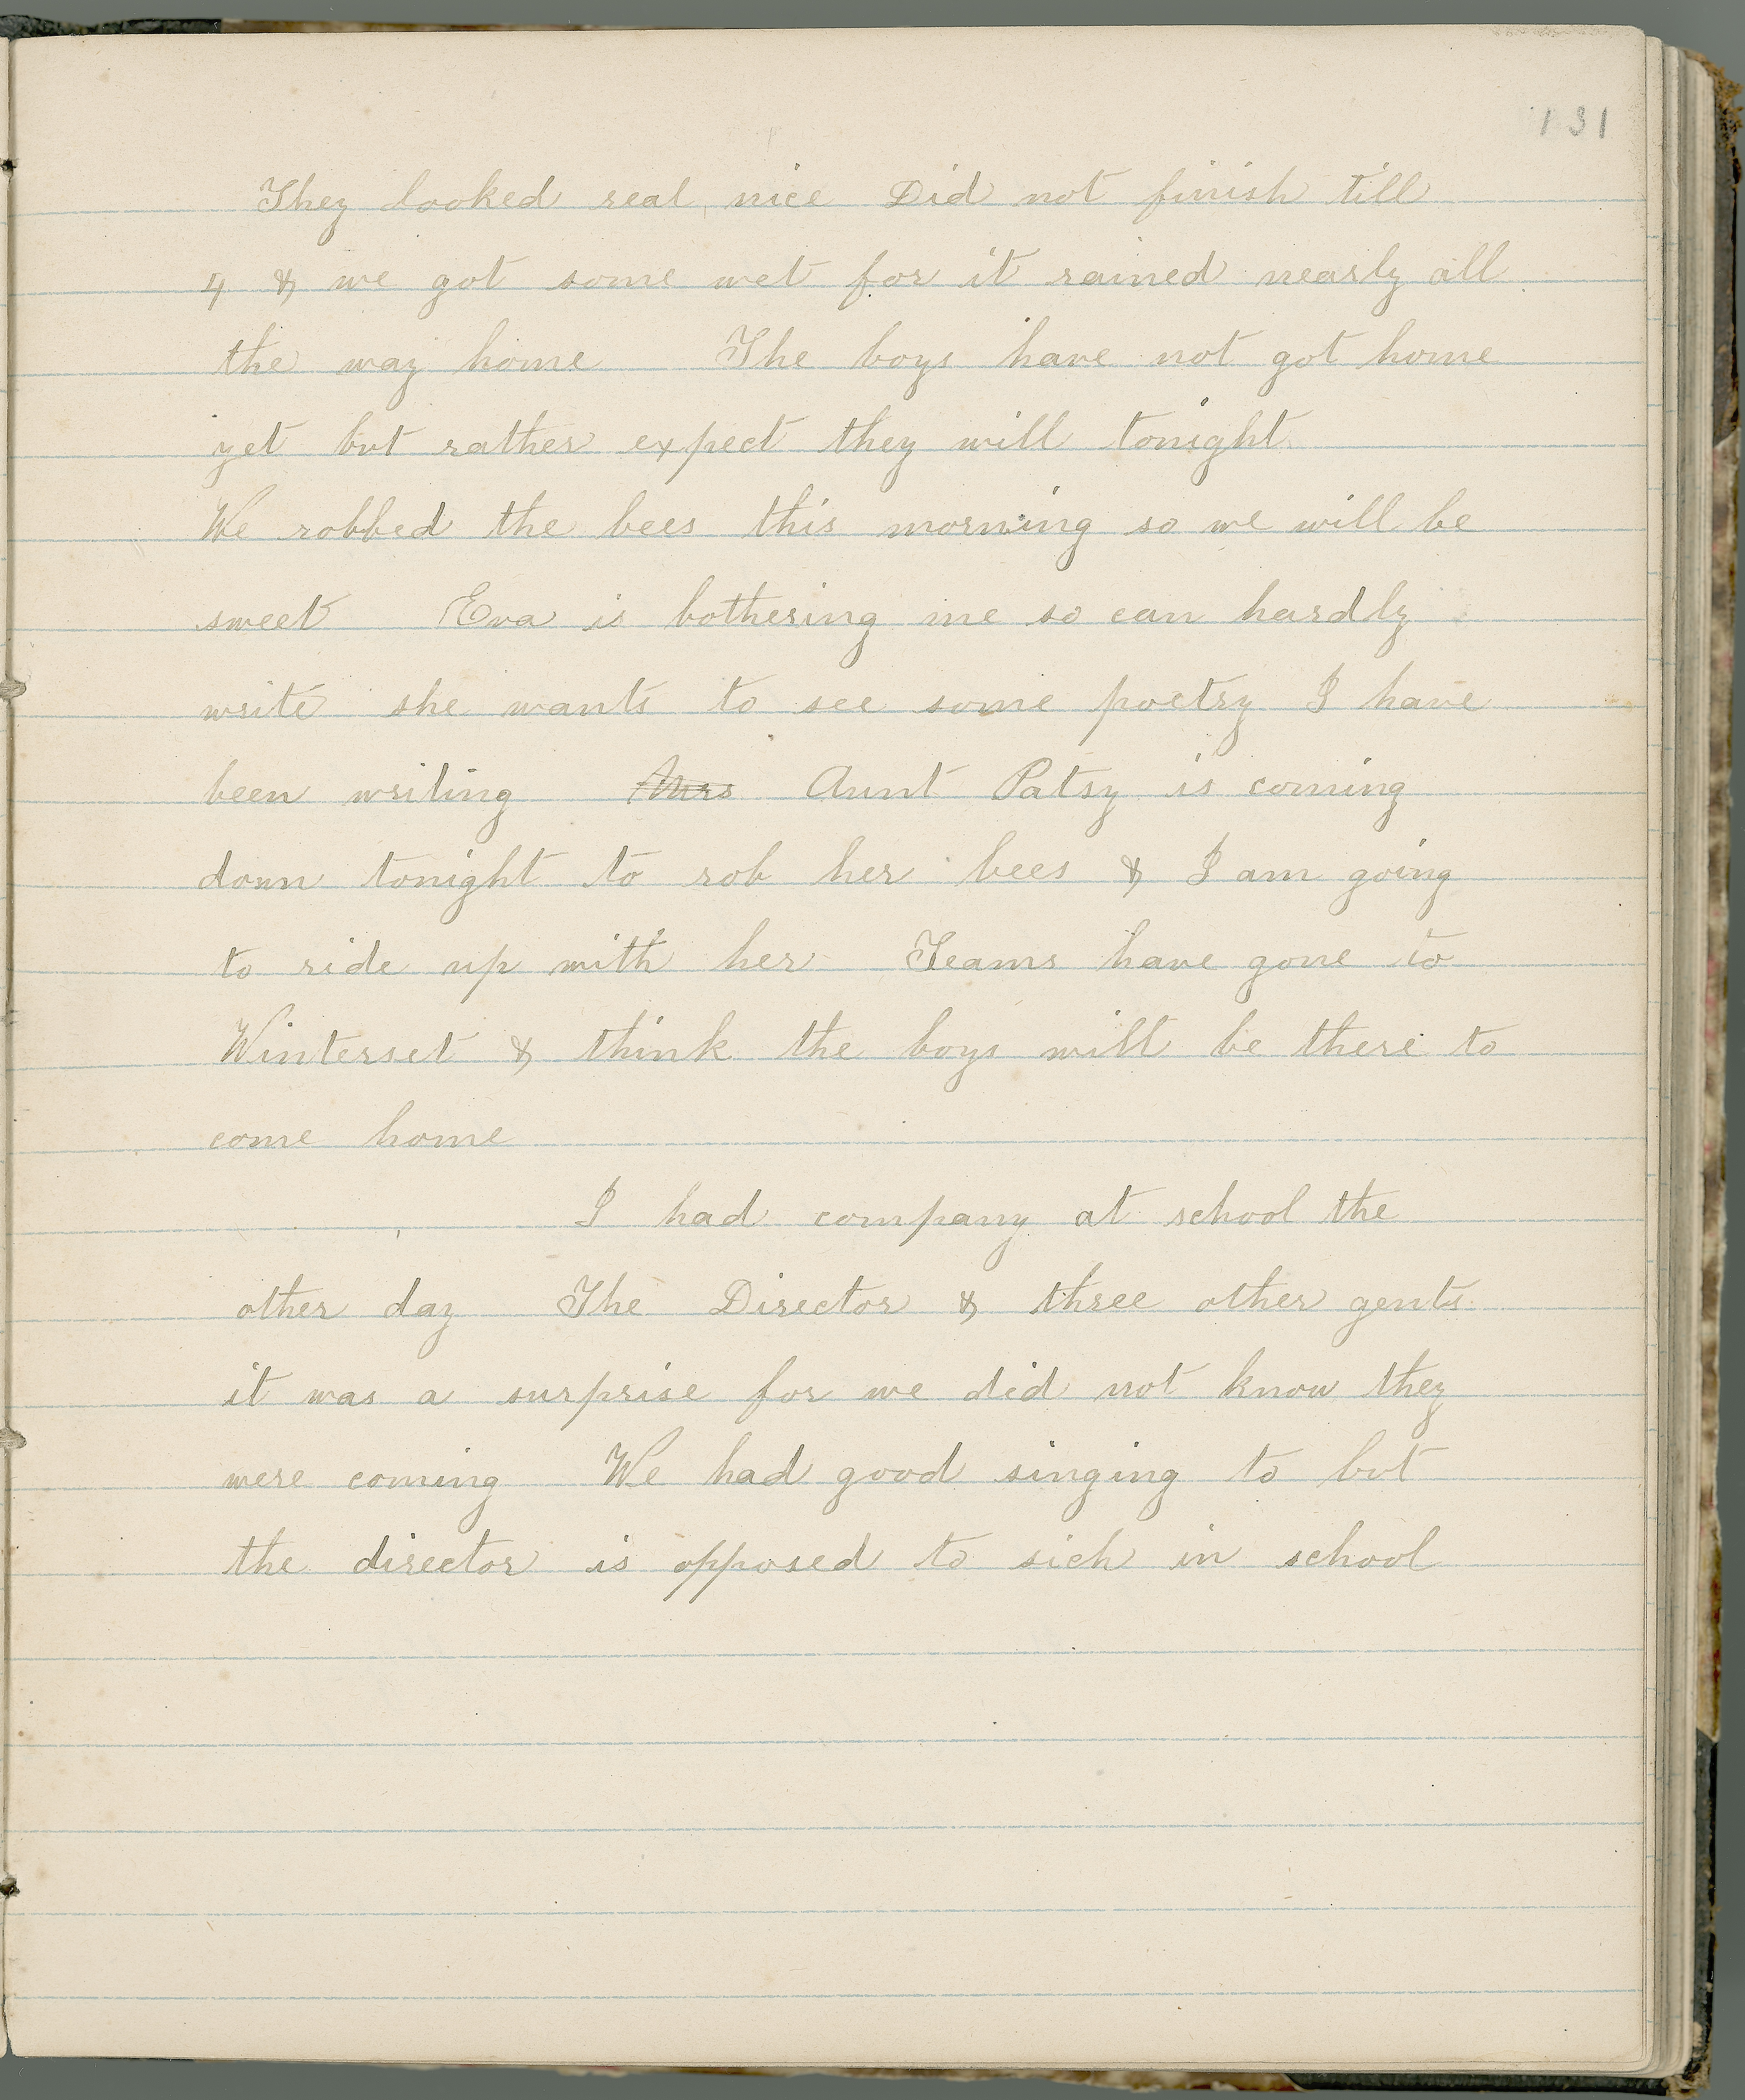 131
They looked real nice Did not finish till
4 & we got some wet for it rained nearly all
the way home The boys have not got home
yet but rather expect they will tonight
We robbed the bees this morning so we will be
sweet Eva is bothering me so can hardly
write she wants to see some poetry I have
been writing Mrs Aunt Patsy is coming
down tonight to rob her bees & I am going
to ride up with her Teams have gone to
Winterset & think the boys will be there to
come home
I had company at school the
other day The Director & three other gents
it was a surprise for we did not know they
were coming We had good singing to but
the director is opposed to sich in school